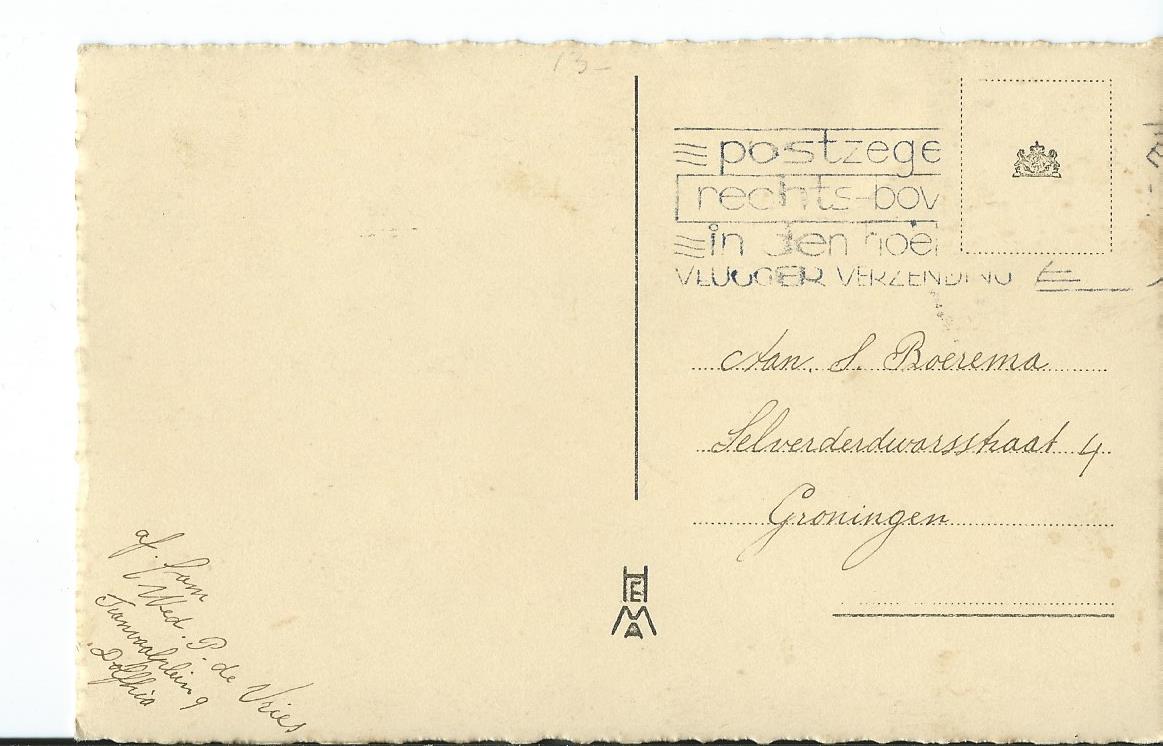 13-
postzege
rechts-bov
in den hoe
VLUGGER VERZENDING
Aan. S. Boerema
Selverderdwarsstraat 4
Groningen
HEMA
af. fam
Wed. P. de Vries
Transvaalplein 9
Delfzijl